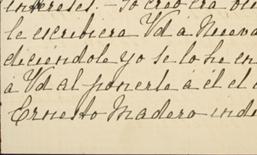 intereses. - Yo creo era
le escribiera Vd a Nueva
diciendole yo se lo he en
á Vd al ponerle á él el
Ernesto Madero inde